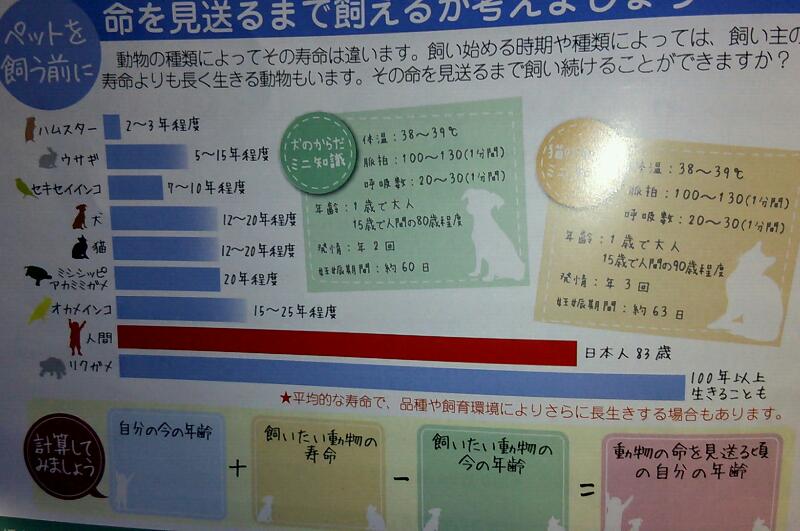 ペットを
飼う前に
命を見送るまで飼えるか考えましょう
動物の種類によってその寿命は違います。飼い始める時期や種類によっては、飼い主の
寿命よりも長く生きる動物もいます。その命を見送るまで飼い続けることができますか？
ハムスター 2〜3年程度
ウサギ 5〜15年程度
セキセイインコ 7〜10年程度
犬 12〜20年程度
猫 12〜20年程度
ミシシッピ
アカミミガメ 20年程度
オカメインコ 15〜25年程度
人間 日本人83歳
リクガメ 100年以上
生きることも
犬のからだ
ミニ知識
体温：38〜39℃
脈拍：100〜130(1分間)
呼吸数：20〜30(1分間)
年齢：1歳で大人
15歳で人間の80歳程度
発情：年2回
妊娠期間：約60日
猫の
ミニ
体温：38〜39℃
脈拍：100〜130(1分間)
呼吸数：20〜30(1分間)
年齢：1歳で大人
15歳で人間の90歳程度
発情：年3回
妊娠期間：約63日
★平均的な寿命で、品種や飼育環境によりさらに長生きする場合もあります。
計算して
みましょう
自分の今の年齢
+
飼いたい動物の
寿命
−
飼いたい動物の
今の年齢
=
動物の命を見送る頃
の自分の年齢